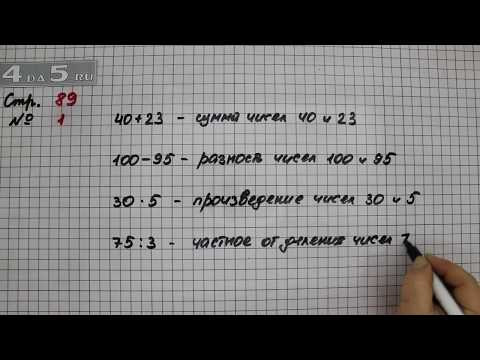 4 DA 5 RU
Стр. 89
№ 1
40+23 - сумма чисел 40 и 23
100-95 - разность чисел 100 и 95
30·5 - произведение чисел 30 и 5
75:3 - частное от деления чисел 7